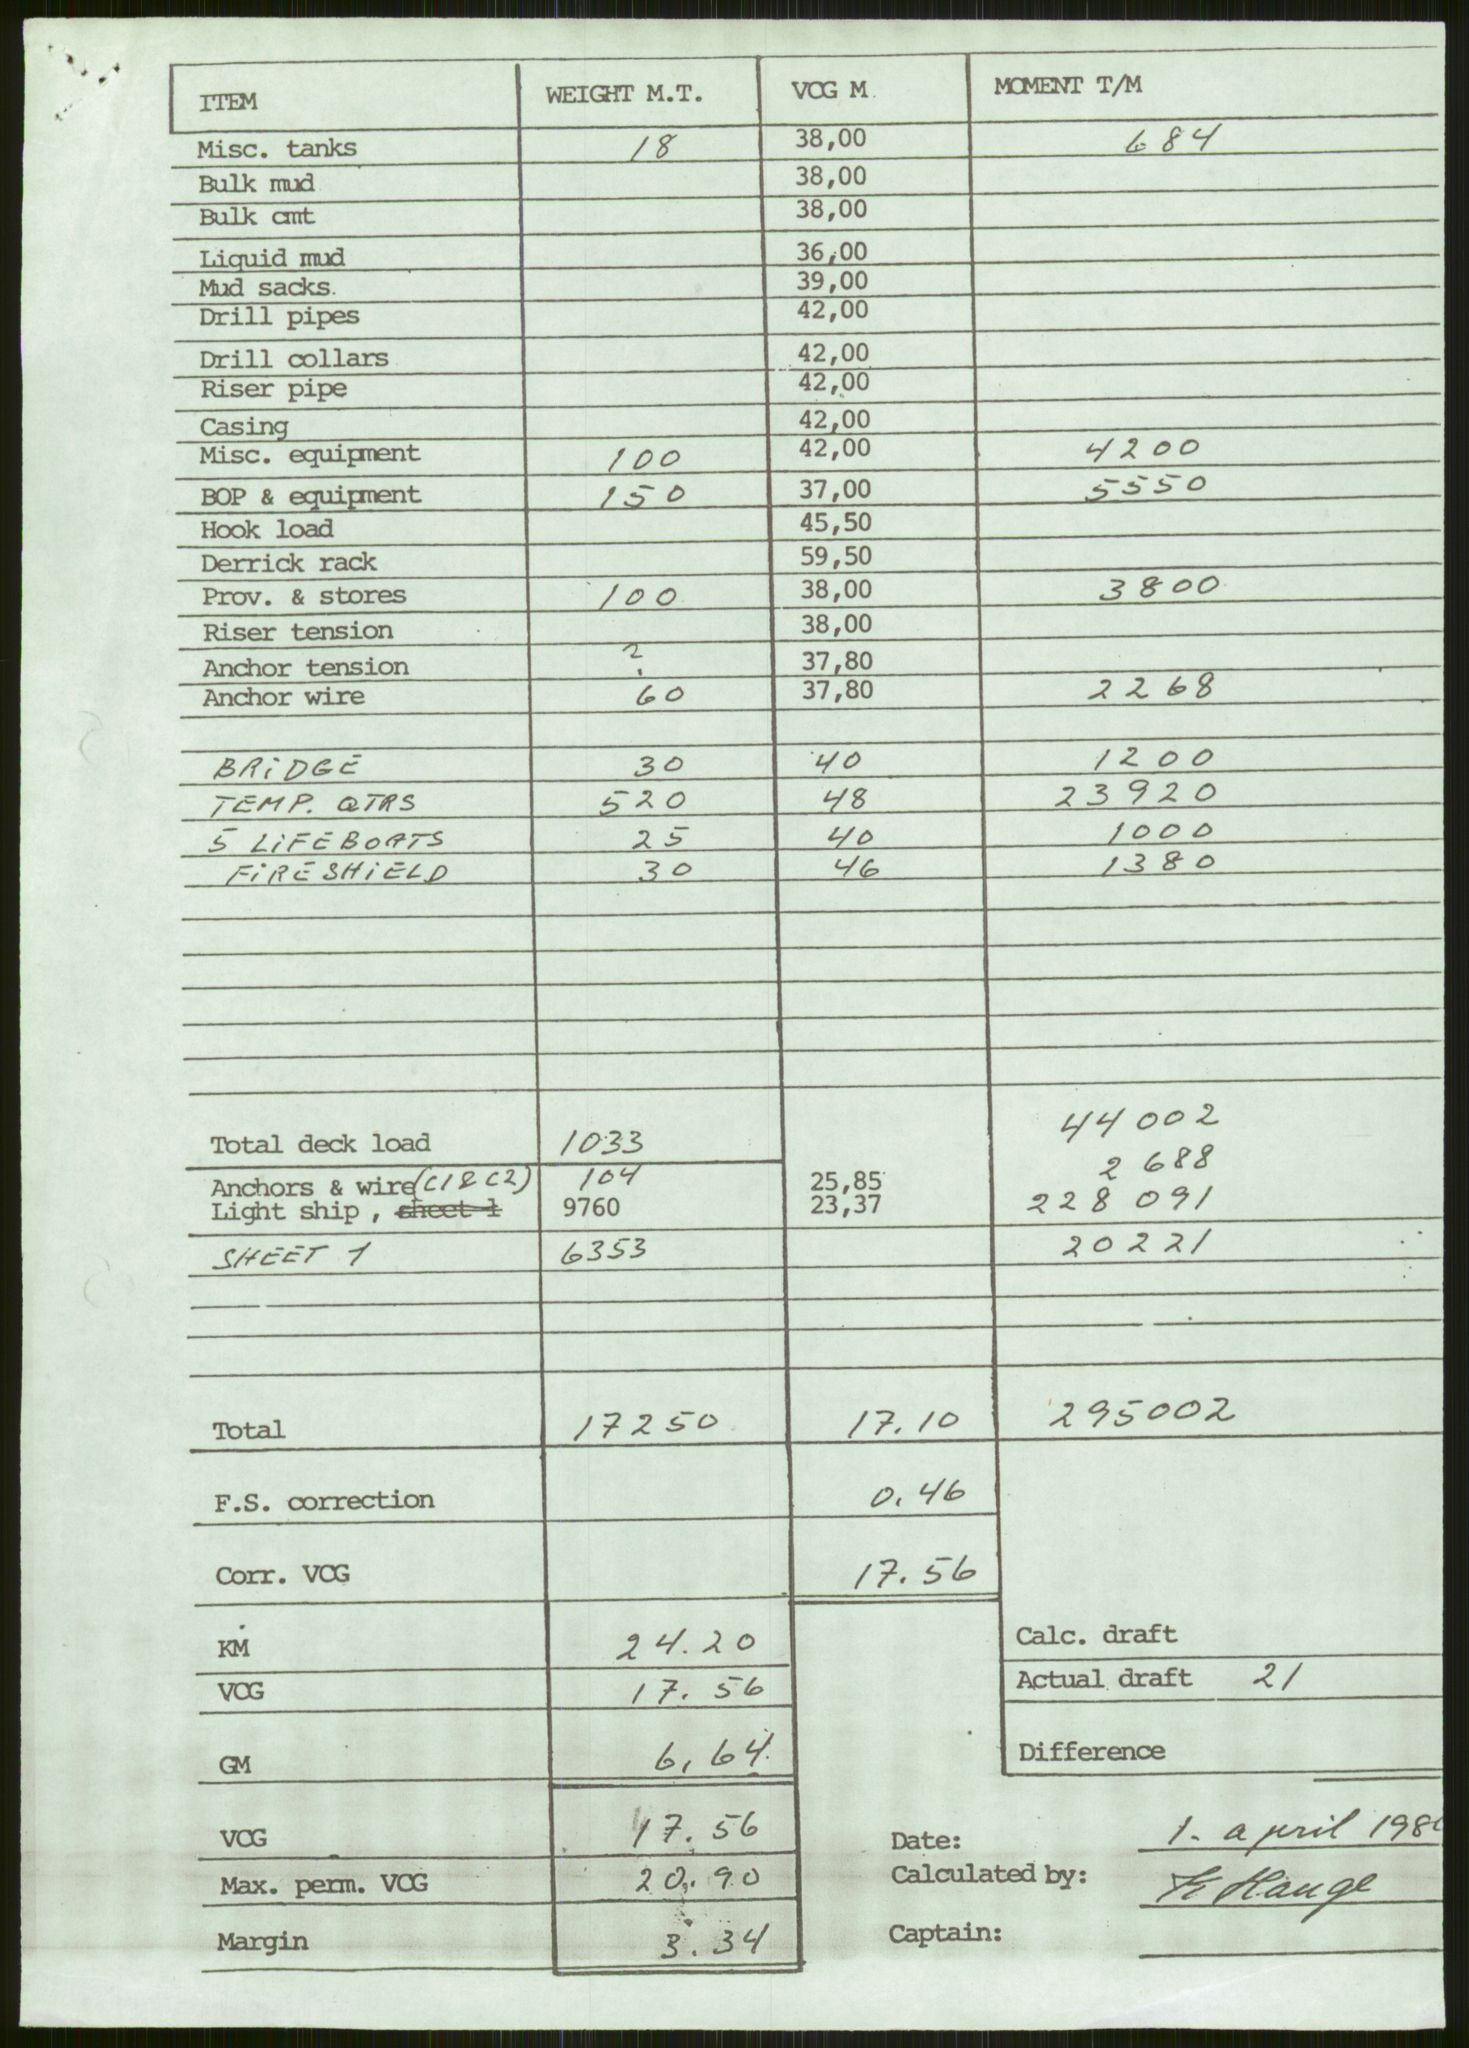 ITEM WEIGHT M.T. VCG M. MOMENT T/M
Misc. tanks 18 38,00 684
Bulk mud 38,00
Bulk cmt 38,00
Liquid mud 36,00
Mud sacks. 39,00
Drill pipes 42,00
Drill collars 42,00
Riser pipe 42,00
Casing 42,00
Misc. equipment 100 42,00 4200
BOP & equipment 150 37,00 5550
Hook load 45,50
Derrick rack 59,50
Prov. & stores 100 38,00 3800
Riser tension 38,00
Anchor tension ? 37,80
Anchor wire 60 37,80 2268
BRIDGE 30 40 1200
TEMP. QTRS 520 48 23920
5 LIFEBOATS 25 40 1000
FIRESHIELD 30 46 1380
Total deck load 1033 44002
Anchors & wire (C1&C2) 104 25,85 2688
Light ship, sheet 1 9760 23,37 228091
SHEET 1 6353 20221
Total 17250 17.10 295002
F.S. correction 0.46
Corr. VCG 17.56
KM 24.20
VCG 17.56
GM 6,64
VCG 17.56
Max. perm. VCG 20.90
Margin 3.34
Calc. draft
Actual draft 21
Difference
Date: 1. april 198
Calculated by: Hauge
Captain: